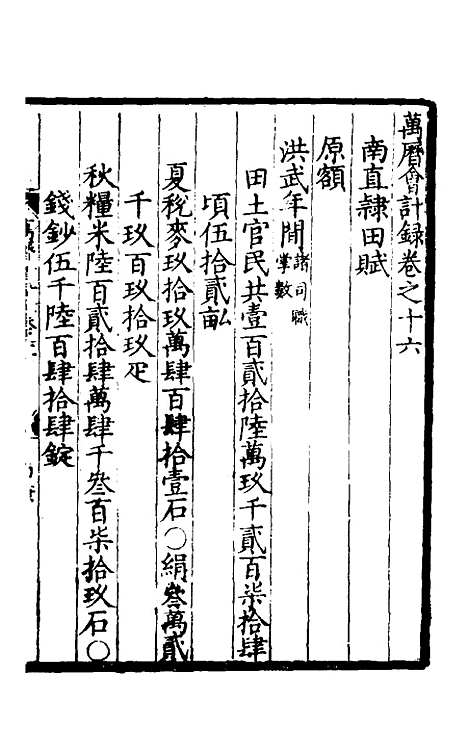 萬曆會計録卷之十六
南直隸田賦
原額
洪武年間諸司職掌數
田土官民共壹百貳拾陸萬玖千貳百柒拾肆
頃伍拾貳畝
夏稅麥玖拾玖萬肆百肆拾壹石〇絹叄萬貳
千玖百玖拾玖疋
秋糧米陸百貳拾肆萬肆千叄百柒拾玖石〇
錢鈔伍千陸百肆拾肆錠